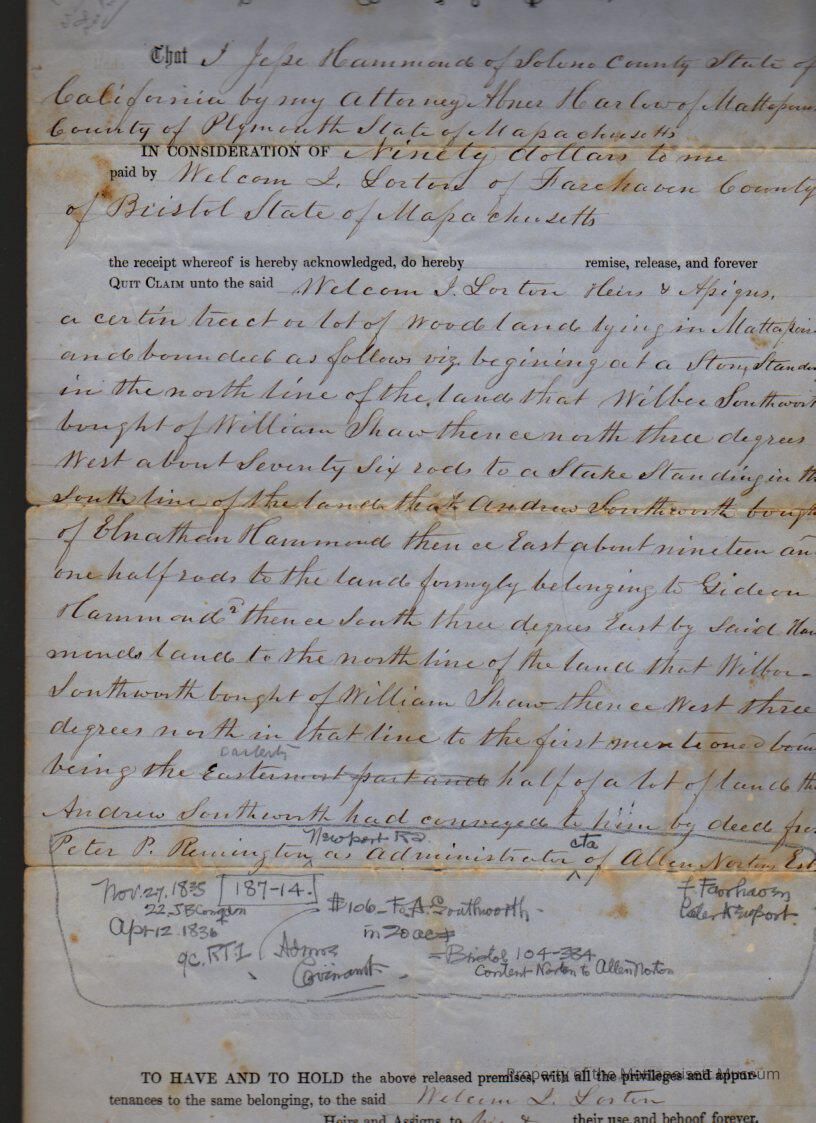 That I Jesse Hammond of Soleno County State of
California by my Attorney Abner Harlow of Mattapois
County of Plymouth State of Massachusetts
IN CONSIDERATION OF Ninety dollars to me
paid by Welcom I. Lorton of Farehaven County
of Bristol State of Massachusetts
the receipt whereof is hereby acknowledged, do hereby remise, release, and forever
QUIT CLAIM unto the said Welcom I. Lorton Heirs & Assigns,
a certin tract or lot of wood land lying in Mattapois
and bounded as follows viz. begining at a Stone Standin
in the north line of the land that Wilber Southwort
bought of William Shaw thence north three degrees
West about Seventy Six rods to a Stake Standing in th
South line of the land that Andrew Southworth bough
of Elnathan Hammond thence East about nineteen an
one half rods to the land formgly belonging to Gideon
Hammond 2d thence South three degrees East by said Ham
monds land to the north line of the land that Wilbor
Southworth bought of William Shaw thence West three
degrees north in that line to the first mentioned boun
being the Eastermost part and half of a lot of land th
Andrew Southworth had conveyed to him by deed fro
Newport Rd cta
Peter P. Remington as Administrator of Allen Nortons Est
Nov. 27. 1835 187-14.
22. J B Congdon $106- To A. Southworth
Apr 12. 1836 in 20 ac
qc. RTI Admrs Bristol 104-384
Covenant Content Norton to Allen Norton
f. Fairhaven
later Newport
TO HAVE AND TO HOLD the above released premises, with all the privileges and appur-
Property of the Mattapoisett Museum
tenances to the same belonging, to the said Welcom I. Lorton
Heirs and Assigns, to his & their use and behoof forever.